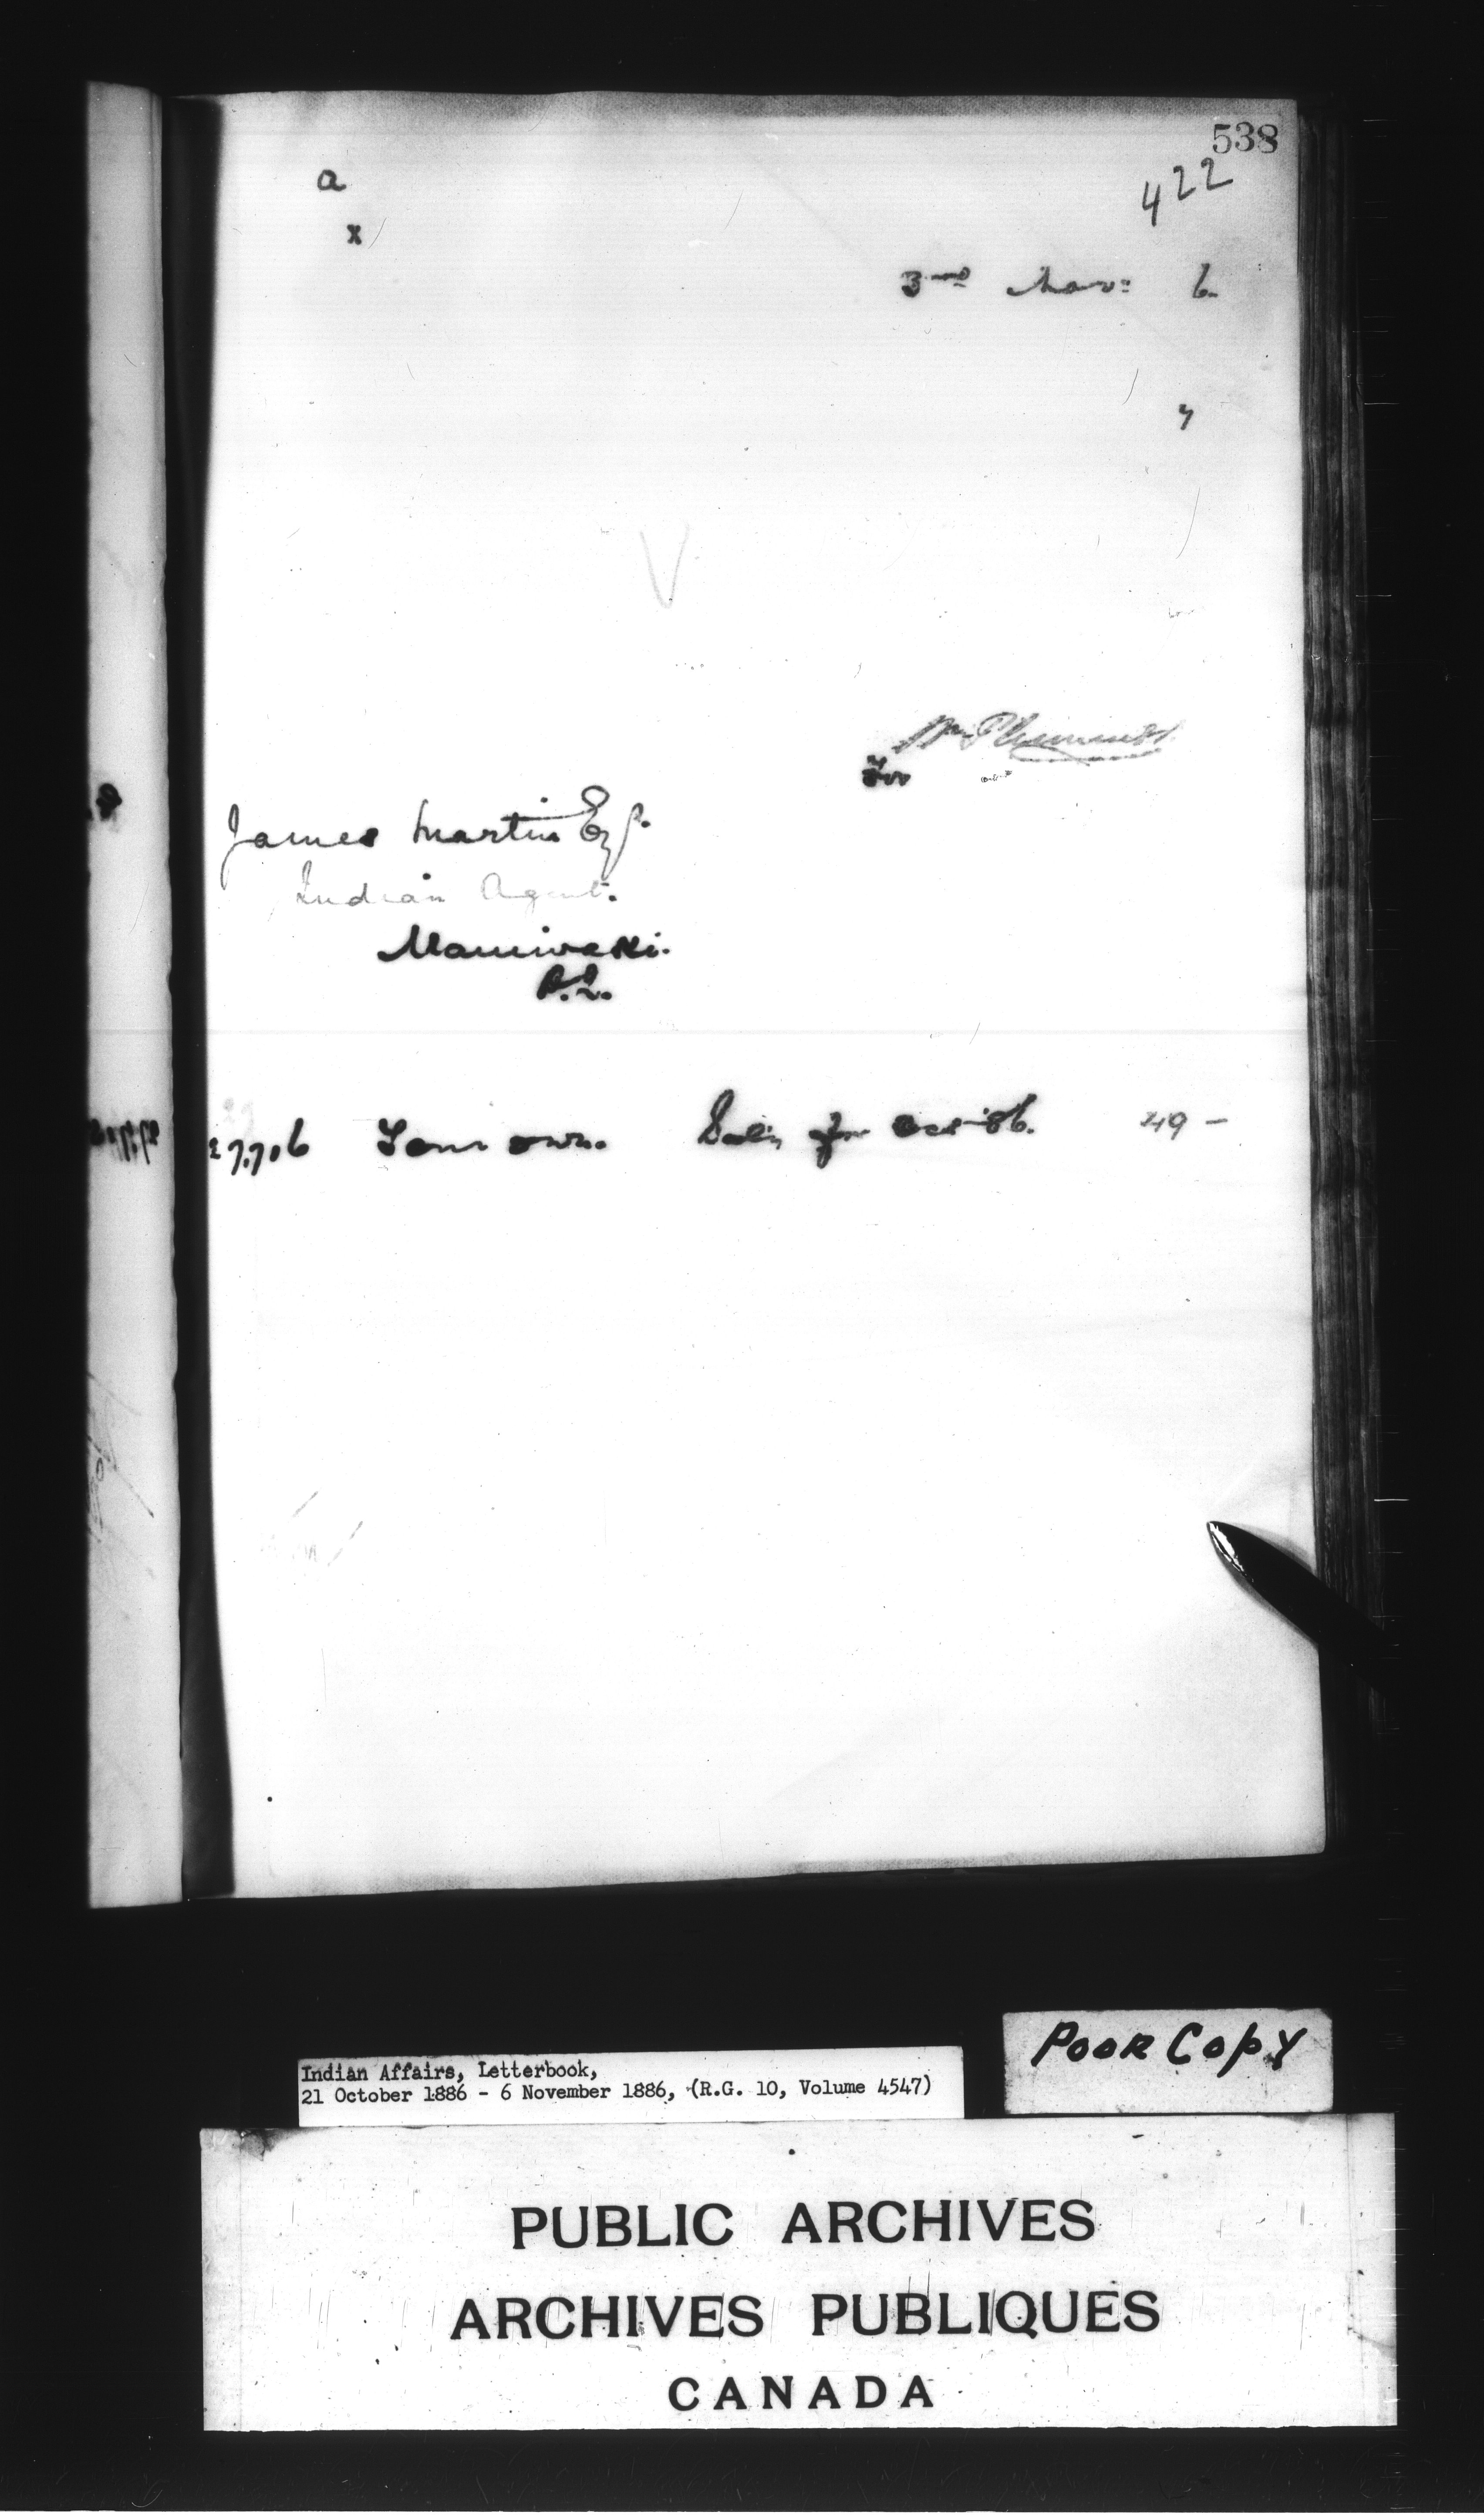 538
422
a
x
3rd Nov: 6
y
for
James Martin Esq.
Indian Agent.
Maniwaki.
P.Q.
27.706 Your own. Sal'y for Oct '86. 49 –
Poor Copy
Indian Affairs, Letterbook,
21 October 1886 - 6 November 1886, (R.G. 10, Volume 4547)
PUBLIC ARCHIVES
ARCHIVES PUBLIQUES
CANADA